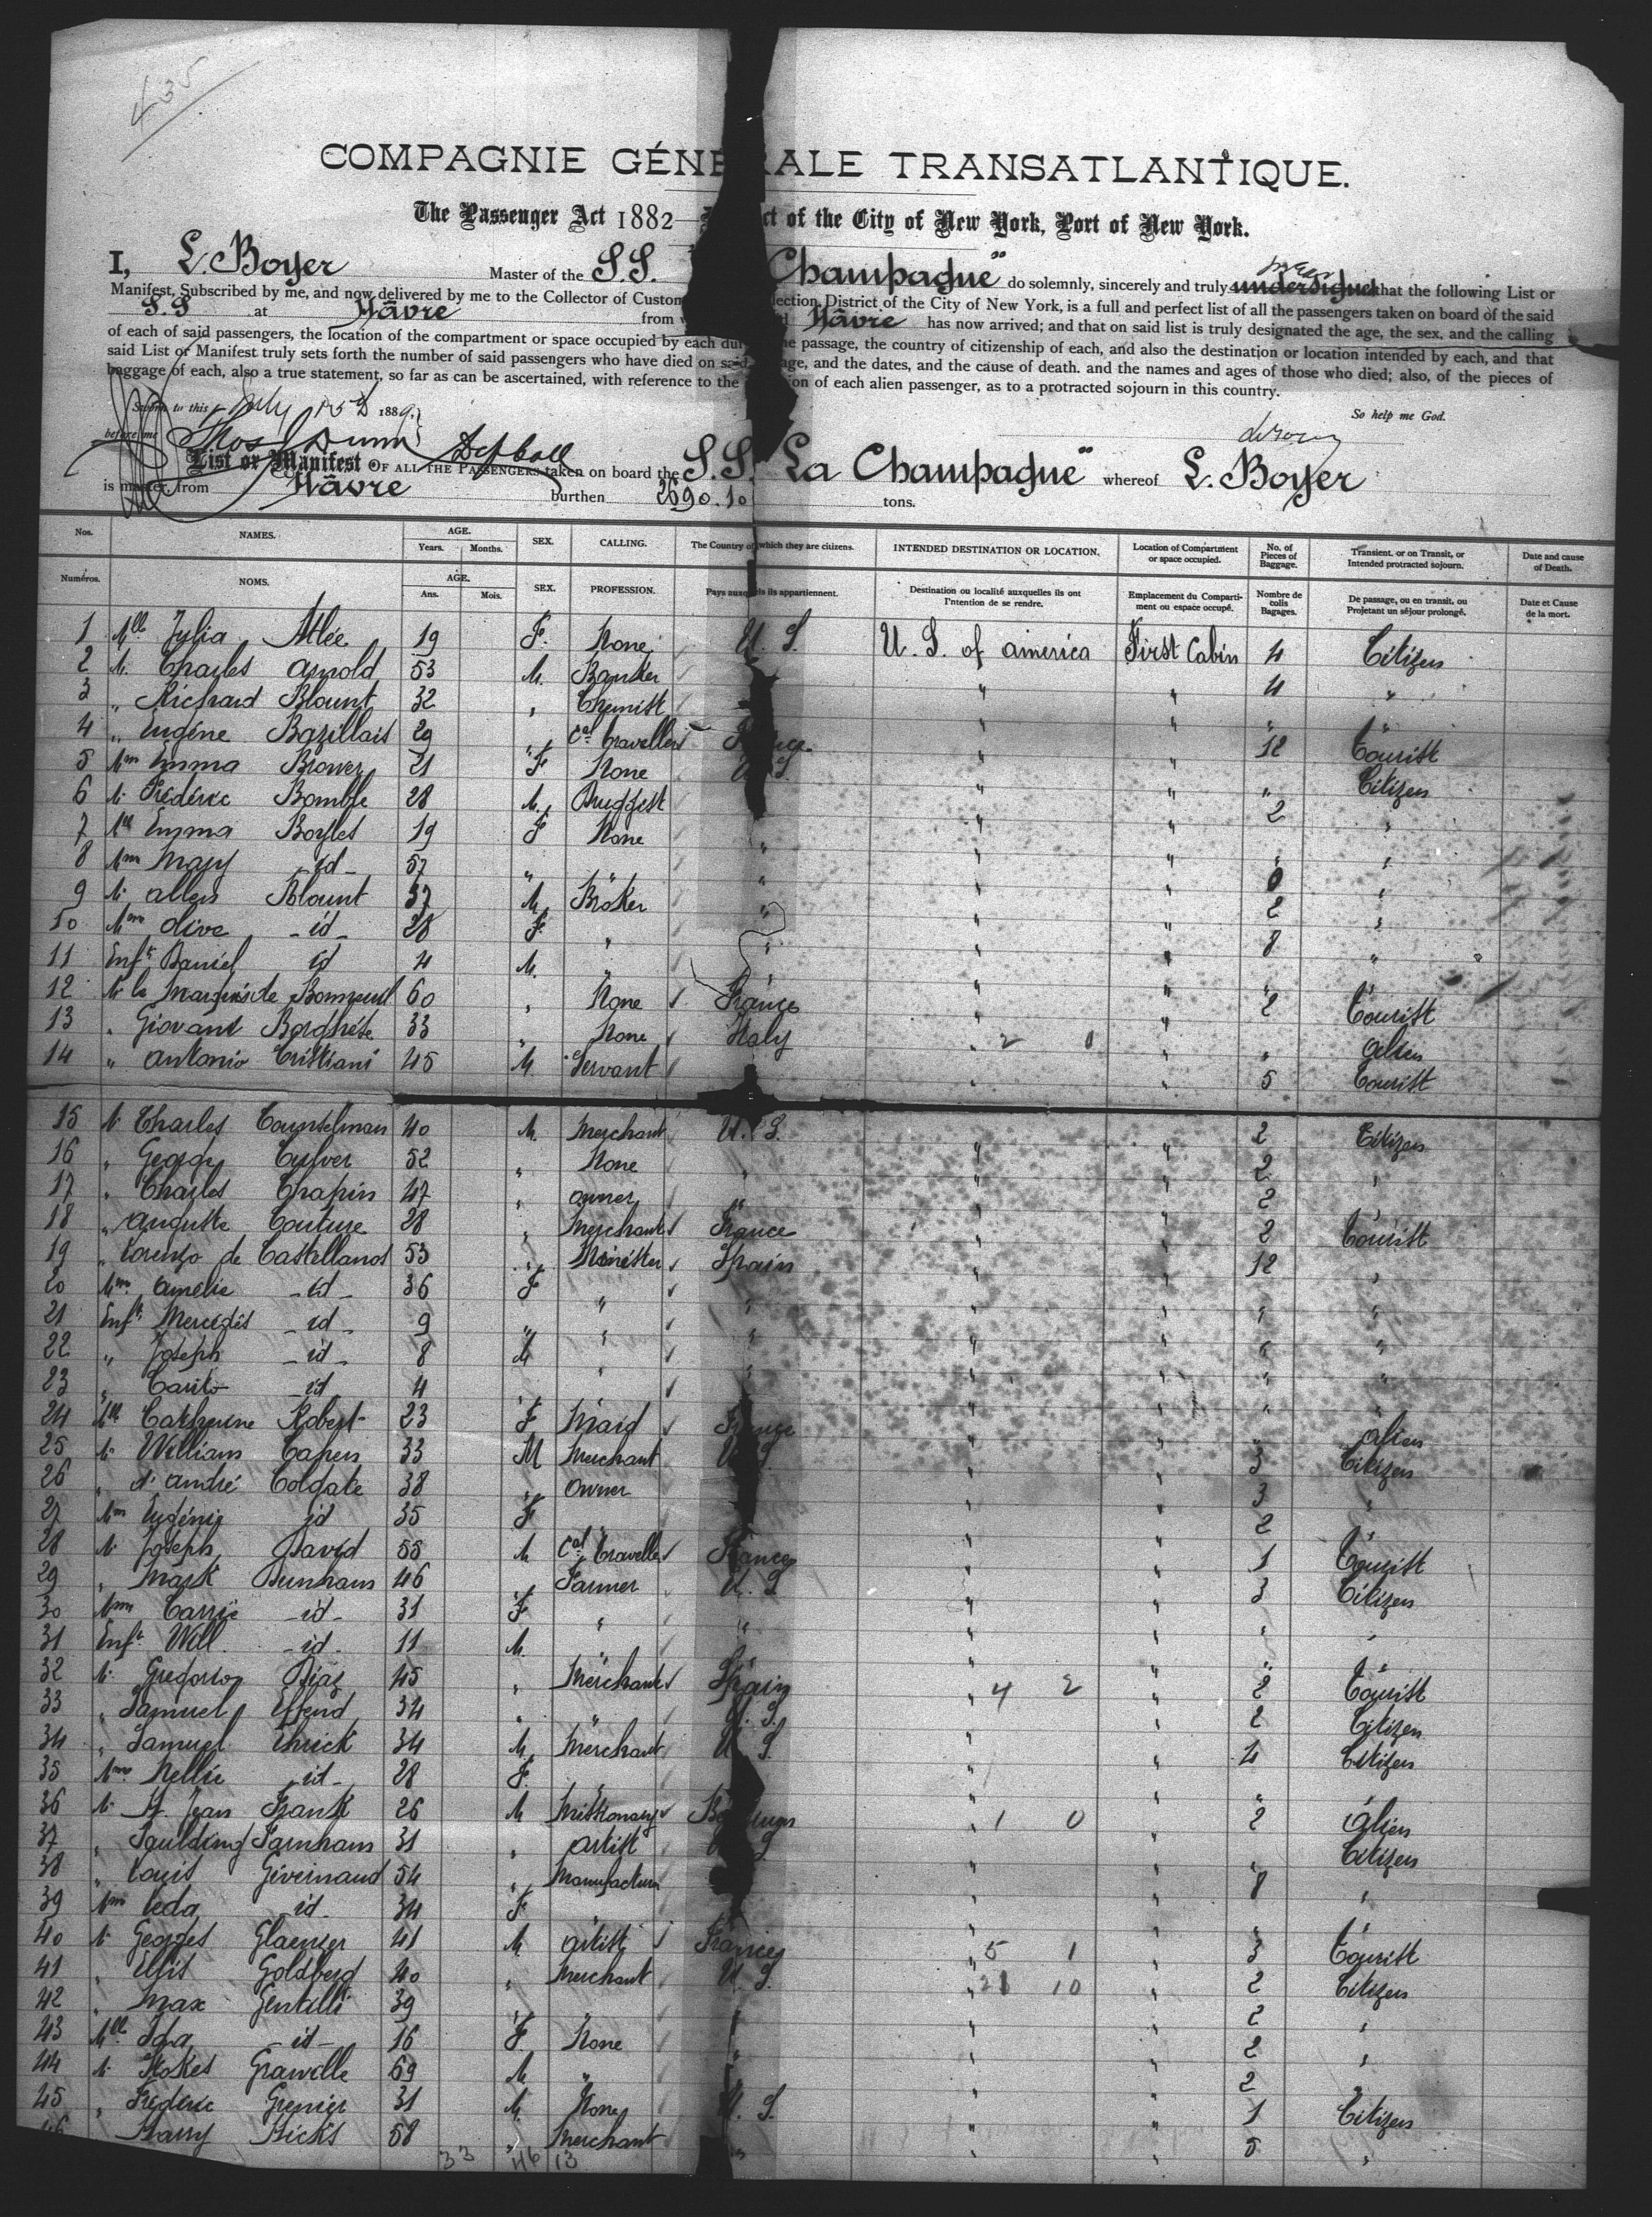 435
COMPAGNIE GÉNE RALE TRANSATLANTIQUE.
The Passenger Act 1882— ct of the City of New York, Port of New York.
I, L. Boyer Master of the S.S. Champagne" do solemnly, sincerely and truly that the following List or
Manifest, Subscribed by me, and now delivered by me to the Collector of Custom lection District of the City of New York, is a full and perfect list of all the passengers taken on board of the said
S.S at Hâvre from Hâvre has now arrived; and that on said list is truly designated the age, the sex, and the calling
of each of said passengers, the location of the compartment or space occupied by each du he passage, the country of citizenship of each, and also the destination or location intended by each, and that
said List or Manifest truly sets forth the number of said passengers who have died on said age, and the dates, and the cause of death. and the names and ages of those who died; also, of the pieces of
baggage of each, also a true statement, so far as can be ascertained, with reference to the on of each alien passenger, as to a protracted sojourn in this country.
Sworn to this July 15 1889. So help me God.
before me Thos J Dunn
List or Manifest OF ALL THE PASSENGERS taken on board the S.S. La Champagne" whereof L. Boyer
is master, from Hâvre burthen 2690.10 tons.
Nos. NAMES. AGE. Years. Months. SEX. CALLING. The Country of which they are citizens. INTENDED DESTINATION OR LOCATION. Location of Compartment or space occupied. No. of Pieces of Baggage. Transient. or on Transit, or Intended protracted sojourn. Date and cause of Death.
Numéros. NOMS. AGE. Ans. Mois. SEX. PROFESSION. Pays auxquels ils appartiennent. Destination ou localité auxquelles ils ont l'intention de se rendre. Emplacement du Comparti-ment ou espace occupé. Nombre de colis Bagages. De passage, ou en transit, ou Projetant un séjour prolongé. Date et Cause de la mort.
1 Mlle Julia Atlée 19 F. None U. S. U. S. of america First Cabin 4 Citizen
2 M. Charles Arnold 53 M. Banker " " 4 "
3 " Richard Blount 32 " Chemist " " " "
4 " Eugéne Bazillais 29 " Cal travellers France " " 12 Tourist
5 Mm Emma Brower 21 F None U S. " " " Citizen
6 M. Fréderic Bomble 28 M. Druggist " " 2 "
7 Mlle Emma Boyles 19 F None " " " " "
8 Mm Mary _id_ 57 " " " " "
9 M. allen Blount 37 M. Broker " " " 2 "
10 Mm Olive _id_ 28 F. " " " "
11 Enft Daniel id 4 M. " " " " " "
12 M. le Marquis de 60 " None France " " 2 Tourist
13 " Giovani Borghése 33 " None Italy " 2 " " alien
14 " Antonio Cristiani 45 M. Servant " " 5 Tourist
15 M. Charles Counselman 40 M. Merchant U. S. " " 2 Citizen
16 " Georgy Culver 52 " None " " " 2 "
17 " Charles Chapin 47 " owner " " " 2 "
18 " Auguste Couture 28 " Merchant France " " 2 Tourist
19 " Lorenzo de Castellanos 53 " Minister Spain " " 12 "
20 Mm. Amelie _id_ 36 F " " " " " "
21 Enft Mercedés _id_ 9 " " " " " " "
22 " Joseph _id_ 8 M " " " " "
23 " _id 4 " " " "
24 Mlle Catherine Robert 23 F Maid France " " " alien
25 M. William Capen 33 M Merchant U S. " " 3 Citizen
26 " d'André Colgate 38 " Owner " " 3 "
27 Mm Eugénie id 35 F " " 2 "
28 M. Joseph David 55 M Cal traveller France " " 1 Tourist
29 " Mark Dunham 46 " Farmer U. S " " 3 Citizen
30 Mm Carrie _id_ 31 F " " " " " "
31 Enft Will _id_ 11 M. " " " " "
32 M. Gregorio Diaz 45 " Merchant Spain " 4 2 " 2 Tourist
33 " Samuel Effend 34 " " U. S. " " 2 Citizen
34 " Samuel Ehrick 34 M. Merchant U S. " " 4 Citizen
35 Mm. Nellie _id_ 28 F. " " " "
36 M. St. Jean Frank 26 M Missionary Belgium " 1 0 " 2 alien
37 " Farnham 31 " artist U S " " Citizen
38 " Louis Givernaud 54 " Manufacturer " " 8 "
39 Mm Leda _id_ 34 F " " " " "
40 M. Georges Glaenzer 41 M. artist France " 5 1 " 3 Tourist
41 " Ellis Goldberg 40 " Merchant U S. " 21 10 " 2 Citizen
42 " Max Gentilli 39 " " " " 2 "
43 Mlle. Ida _id_ 16 F None " " " 2 "
44 M. Stokes Granville 69 M " " " 2 "
45 " Fréderic Grenier 31 M. None U. S. " " 1 Citizen
46 Harry Hicks 58 " Merchant " " " 5 "
33 46 13